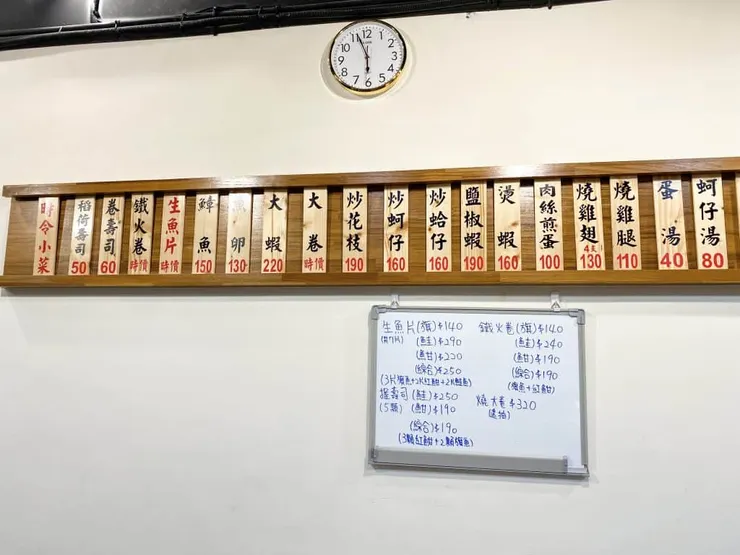 12 1 2 3 4 5 6 7 8 9 10 11
時令小菜
稻荷壽司 50
卷壽司 60
鐵火卷 時價
生魚片 時價
鱆魚 150
魚卵 130
大蝦 220
大卷 時價
炒花枝 190
炒蚵仔 160
炒蛤仔 160
鹽椒蝦 190
燙蝦 160
肉絲煎蛋 100
燒雞翅 4支 130
燒雞腿 110
蛋湯 40
蚵仔湯 80
生魚片(旗)$140
(共7片) (鮭)$290
(魚甘)$220
(綜合)$250
(3片旗魚+2片紅魽+2片鮭魚)
握壽司(鮭)$250
(5顆) (魽)$190
(綜合)$190
(3顆紅魽+2顆旗魚)
鐵火卷(旗)$140
(鮭)$240
(魚甘)$190
(綜合)$190
(旗魚+紅魽)
燒大卷$320